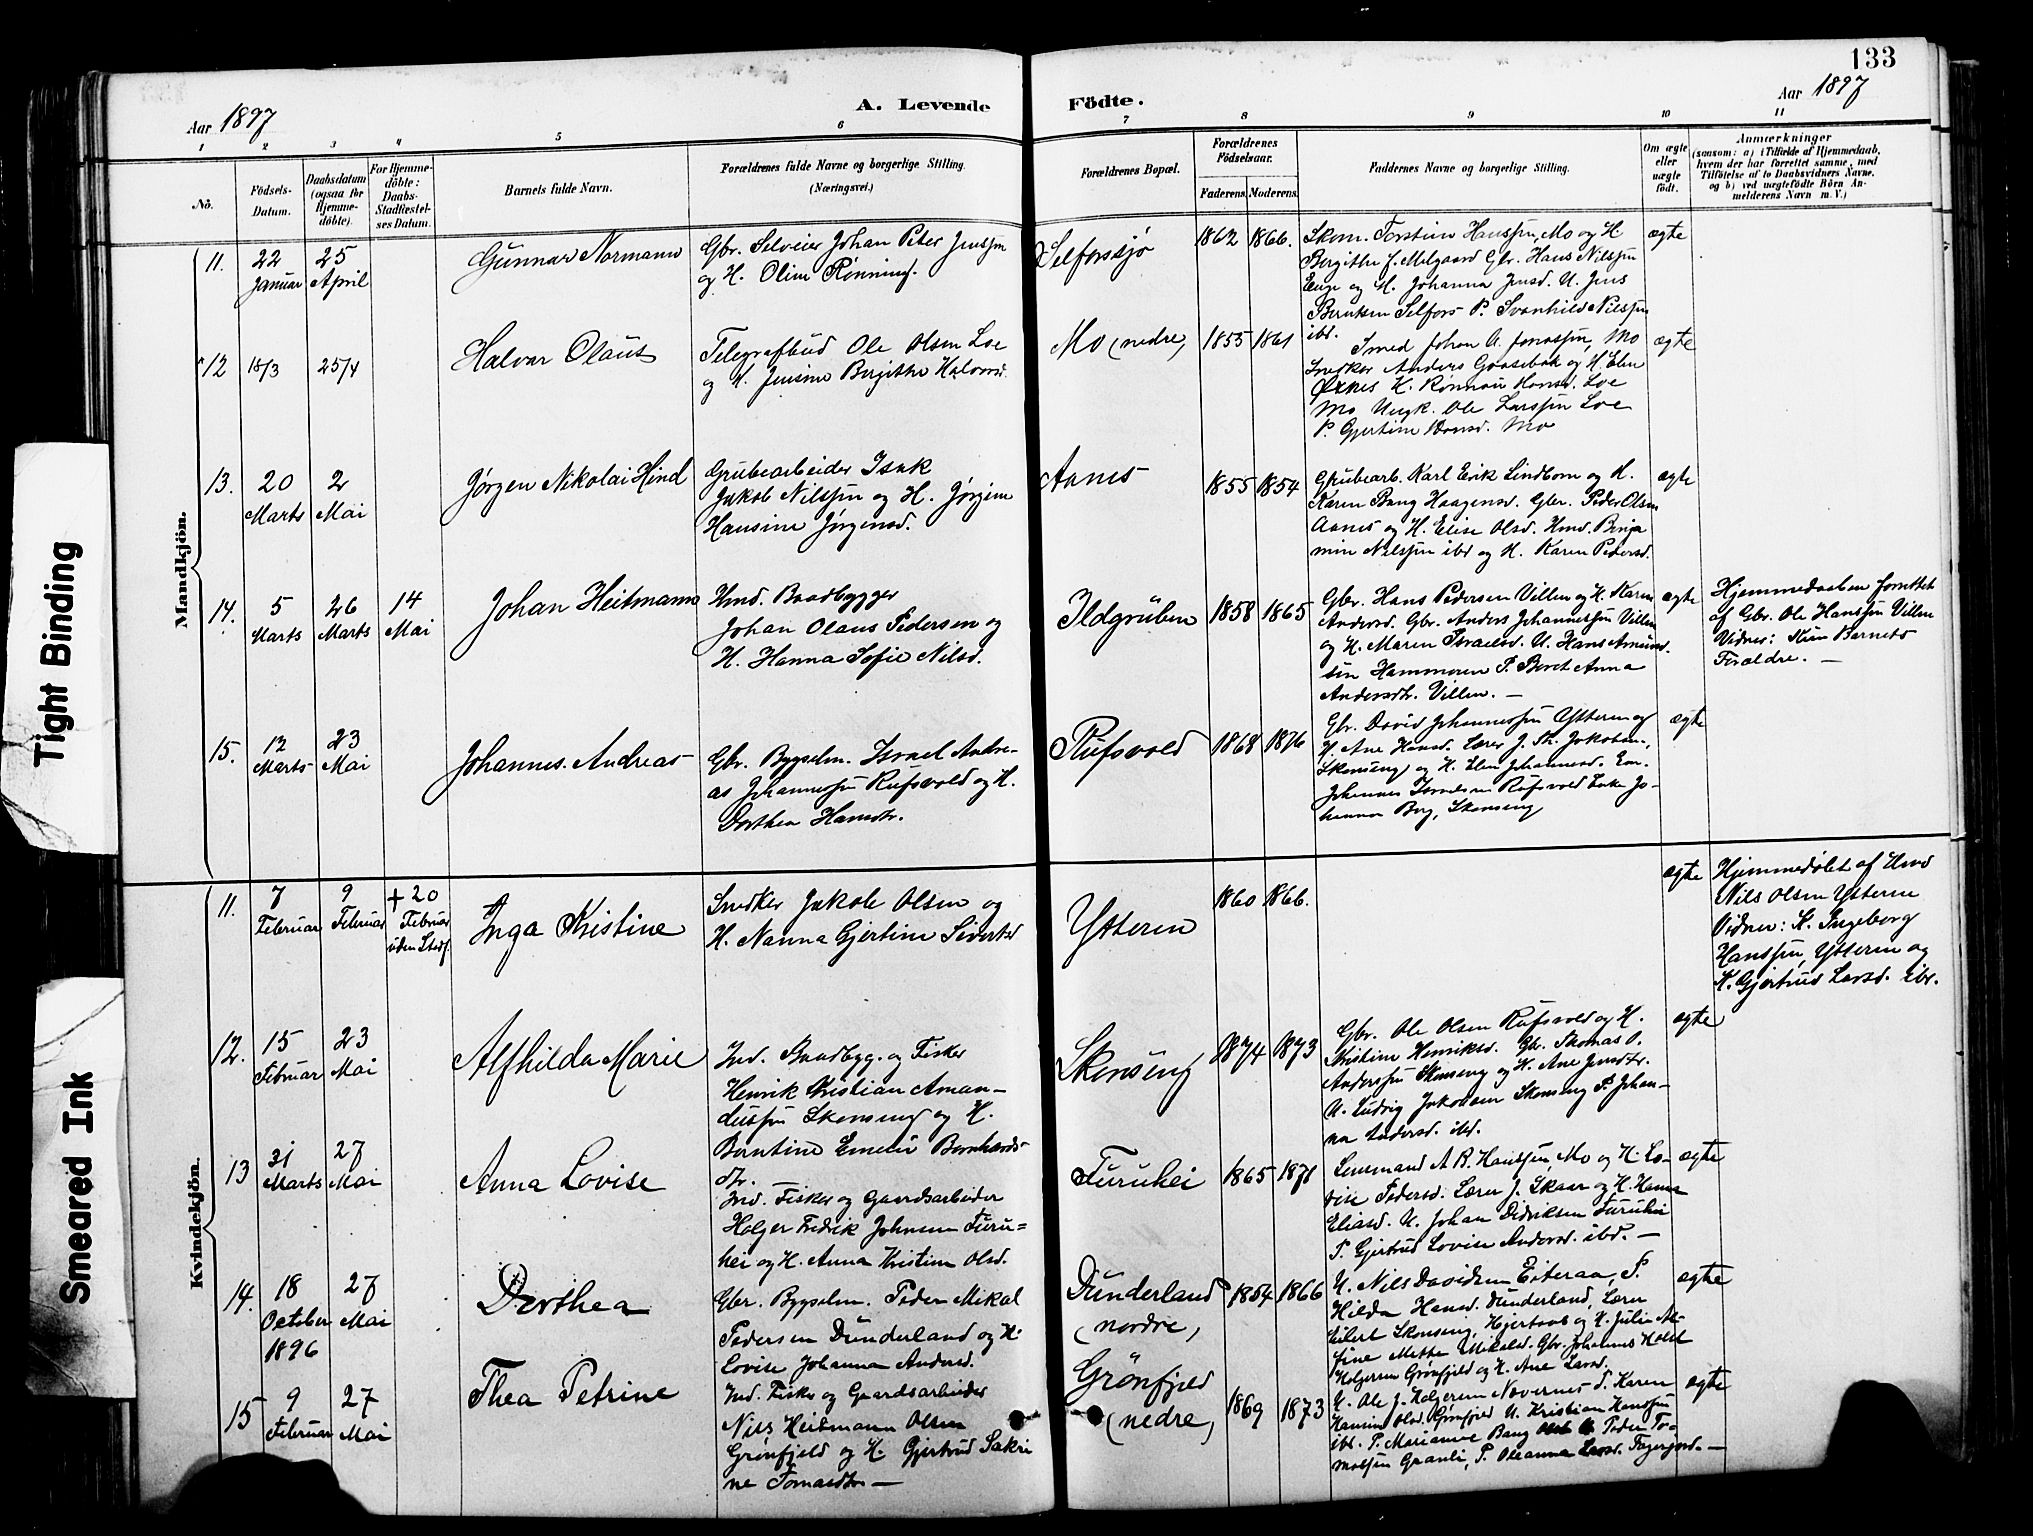 133
Aar 1897
A. Levende
Födte.
Aar 1897
1
2
3
4
5
6
7
8
9
10
11
No.
Födsels-
Datum.
Daabsdatum
(ogsaa for
Hjemme-
döbte).
For Hjemme-
döbte:
Daabs-
Stadfæstel-
ses Datum.
Barnets fulde Navn.
Forældrenes fulde Navne og borgerlige Stilling.
(Næringsvei.)
Forældrenes Bopæl.
Forældrenes
Födselsaar.
Faderens.
Moderens.
Faddernes Navne og borgerlige Stilling.
Om ægte
eller
uægte
födt.
Anmærkninger
(saasom: a) i Tilfælde af Hjemmedaab,
hvem der har forrettet samme, med
Tilföielse af to Daabsvidners Navne,
og b) ved uægtefödte Börn An-
melderens Navn m. V.)
Mandkjön.
11.
22
Januar
25
April
Gunnar Normann
Gbr. Selveier Johan Peter Jenssen
og H. Oline Rønning.
Selforssjø
1862
1866.
Skom. Torstein Hanssen, Mo og H
Bergithe f. Melgaard Gbr. Hans Nilssen
Enge og H. Johanna Jensd. U. Jens
Berntsen Selfors P. Svanhild Nilssen
ibd.
ægte
12
18/3
25/4
Halvar Olaus
Telegrafbud Ole Olsen Loe
og H. Jensine Bergithe Halvorsd.
Mo (nedre)
1855
1861
Smed Johan A. Jonassen, Mo
Snedker Anders Gaasebak og H. Elen
Øxnes K. Rønnau Hansd. Loe
Mo Ungk. Ole Larssen Loe
P. Gjertine Hansd. Mo
ægte
13.
20
Marts
2
Mai
Jørgen Nikolai Hind
Grubearbeider Isak
Jakob Nilssen og H. Jørgine
Hansine Jørgensd.
Aanes
1855
1854
Grubearb. Karl Erik Lindbom og H.
Karen Bang Haagensd. Gbr. Peder Olsen
Aanes og H. Elise Olsd. Hmd. Benja
min Nilssen ibd og H. Karen Pedersd.
ægte
14.
5
Marts
26
Marts
14
Mai
Johan Heitmann
Hmd. Baadbygger
Johan Olaus Pedersen og
H. Hanna Sofie Nilsd.
Ildgruben
1858
1865
Gbr. Hans Pedersen Villen og H. Karen
Andersd. Gbr. Anders Johannessen Villen
og H. Maren Israelsd. U. Hans Amund-
sen Hammeren P. Beret Anna
Andersdtr. Villen. —
ægte
Hjemmedaaben forrettet
af Gbr. Ole Hanssen Villen
Vidner: Kun Barnets
Forældre. —
15.
12
Marts
23
Mai
Johannes Andreas
Gbr. Bygselm. Israel Andre-
as Johannessen Rufsvold og H.
Dorthea Hansdtr.
Rufsvold
1868
1876
Gbr. David Johannessen Ytteren og
H. Ane Hansd. Lærer J. Th. Jakobsen,
Skonseng og H. Elen Johannesd. Em.
Johannes Israelsen Rufsvold Enke Jo-
hanna Berg, Skonseng
ægte
Kvindekjön.
11.
7
Februar
9
Februar
+ 20
Februar
uden Stadf
Inga Kristine
Snedker Jakob Olsen og
H. Nanna Gjertine Sivertsd
Ytteren
1860
1866.
ægte
Hjemmedøbt af Hmd
Nils Olsen Ytteren
Vidner: K. Ingeborg
Hanssen, Ytteren og
K. Gjertrud Larsd. ibd.
12.
15
Februar
23
Mai
Alfhilda Marie
Ind. Baadbyg. og Fisker
Henrik Kristian Aman-
dussen Skonseng og H.
Berntine Emelie Bernhards-
dtr.
Skonseng
1874
1873
Gbr. Ole Olsen Rufsvold og H.
Kristine Henriksd. Gbr. Thomas O.
Anderssen Skonseng og H. Ane Jensdtr.
U. Ludvig Jakobsen Skonseng P. Johan-
na Andersd. ibd.
ægte
13
31
Marts
27
Mai
Anna Lovise
Ind. Fisker og Gaardsarbeider
Holger Fredrik Johnsen Furu-
hei og H. Anna Kristine Olsd.
Furuhei
1865
1871
Lensmand A B. Hanssen, Mo og H. Lo-
vise Pedersd. Lærer J. Skaar og H. Hanna
Eliasd. U. Johan Didriksen Furuhei
P. Gjertrud Lovise Andersd. ibd. —
ægte
14.
18
October
1896
27
Mai
Dorthea
Gbr. Bygselm. Peder Mikal
Pedersen Dunderland og H.
Lovise Johanna Andersd.
Dunderland
(nordre)
1854
1866
U. Nils Davidsen Eiteraa, P.
Hilda Hansd. Dunderland, Lærer
Eilert Skonseng, Hjertaas og H. Julie Al-
fine Mette Mikalsd. Gbr. Johannes Holst
Holgersen Grønfjeld og H. Ane Larsd.
ægte
15
9
Februar
27
Mai
Thea Petrine
Ind. Fisker og Gaardsarbeider
Nils Heitmann Olsen
Grønfjeld og H. Gjertrud Sakri
ne Tomasdtr. —
Grønfjeld
(nedre)
1869
1873
U. Ole J. Holgersen Nævernes P. Karen
Hansine Olsd. Grønfjeld U. Kristian Hanssen
ibd. P. Marianne Bang Peder To-
massen Granli, P. Oleanna Larsd. Fagerjord. —
ægte
Tight Binding
Smeared Ink